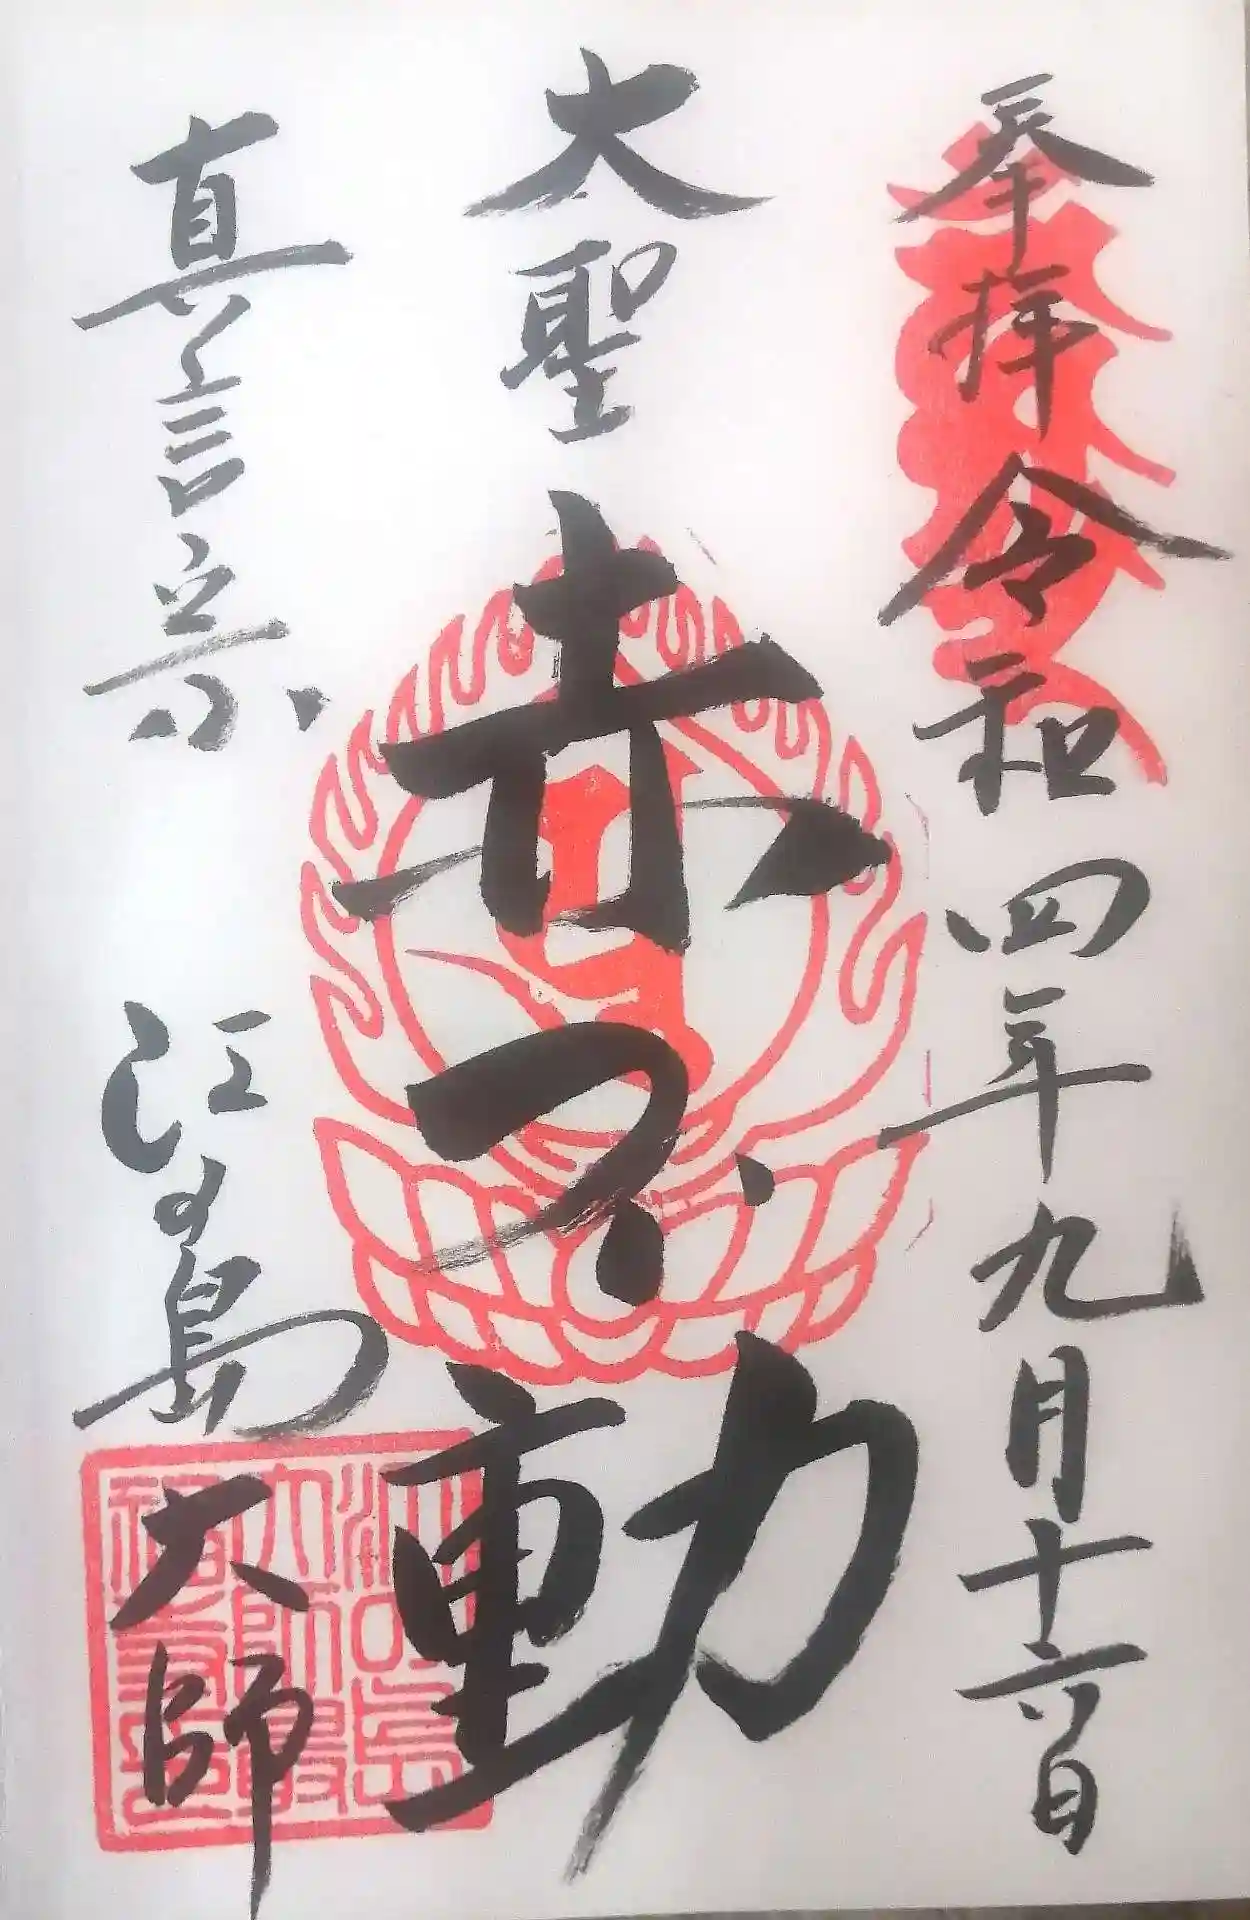 奉拝 令和四年九月十六日
大聖 赤不動
真言宗 江の島大師